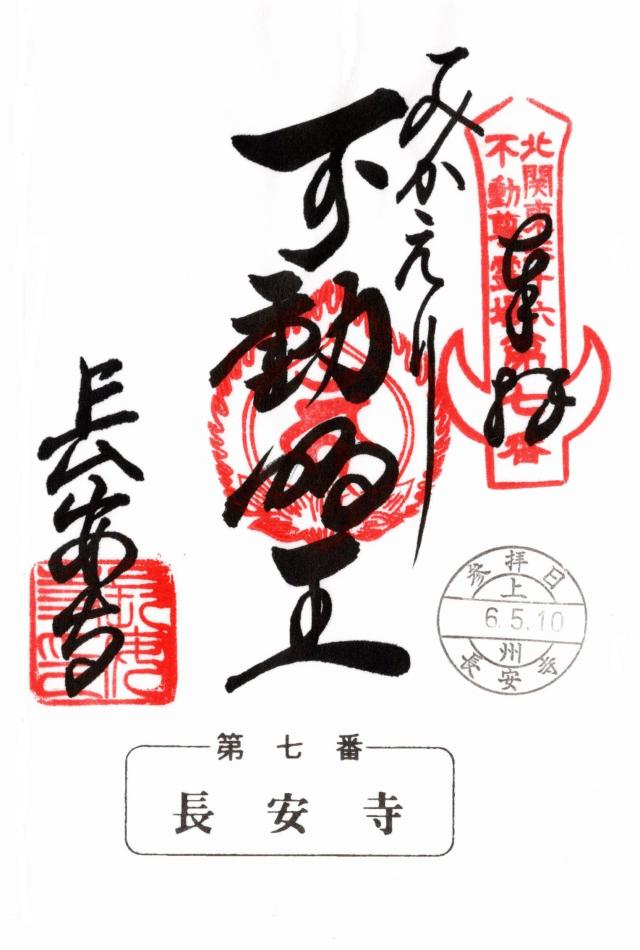 奉拝
北関東三十六
不動尊霊場第七番
みかえり
不動明王
長安寺
参拝日
上州
6.5.10
長安寺
第七番
長安寺